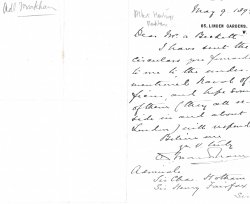 May 9. 189
65, LINDEN GARDENS,
W.
Dear Mr. a Beckett
I have sent the
circulars you forwarded
to me to the under-
mentioned Naval
and hope some
of them (they all re-
side in and about
London) will respond
Believe me
yrs truly
Admirals
Sir Chas. Hotham
Sir Henry Fairfax